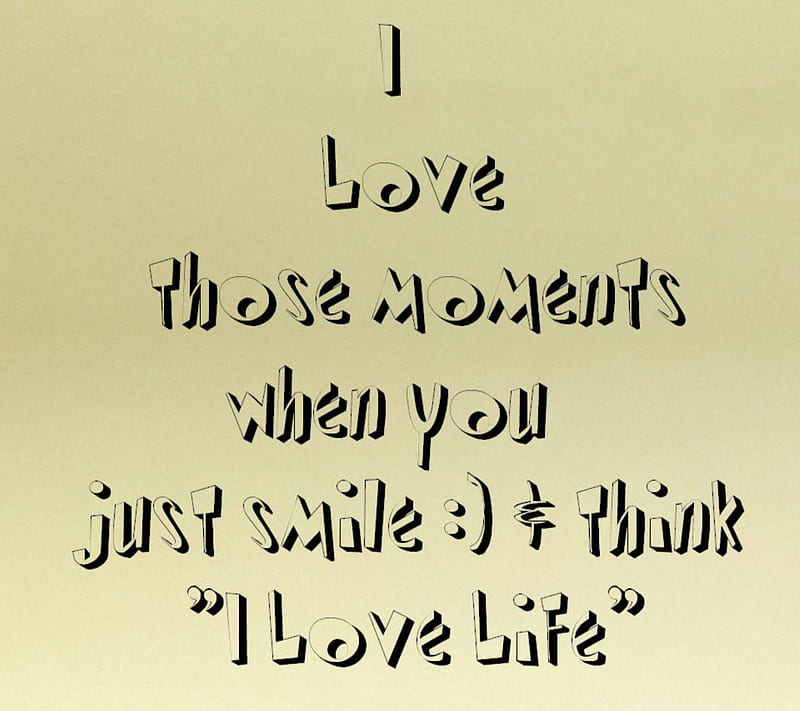 I
Love
those moments
when you
just smile :) & think
”I Love Life”